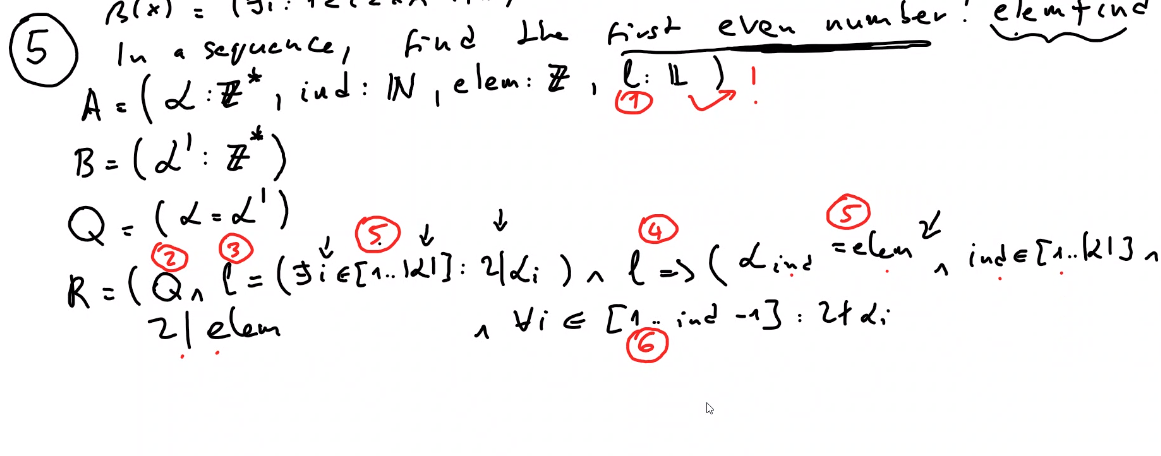 B(x) = (
5 In a sequence, find the first even number! elem+ind
A = ( α : ℤ*, ind : ℕ, elem : ℤ, l : 𝕃 ) !
1
B = ( α' : ℤ* )
Q = ( α = α' )
2 3 5. 4 5
R = ( Q ∧ l = (∃ i ∈ [1..|α|] : 2|αi ) ∧ l => ( αind = elem ∧ ind ∈ [1..|α|] ∧
2 | elem ∧ ∀i ∈ [1.. ind -1] : 2∤αi
6